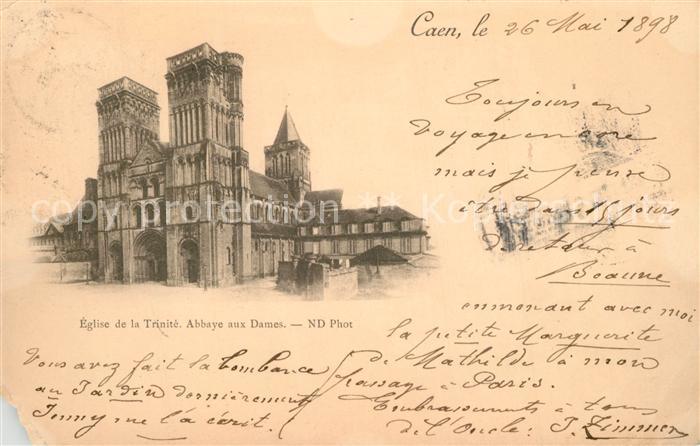 Caen, le 26 Mai 1898
Toujours en
voyage encore
mais je pense
être dans 15 jours
de retour à
Beaune
emmenant avec moi
la petite Marguerite
de Mathilde à mon
passage à Paris.
Embrassements à tous
de l'Oncle: J. Zimmer
copyright protection ** Kolonat
Église de la Trinité. Abbaye aux Dames. — ND Phot
Vous avez fait la bombance
au Jardin dernièrement
Jenny me l'a écrit.